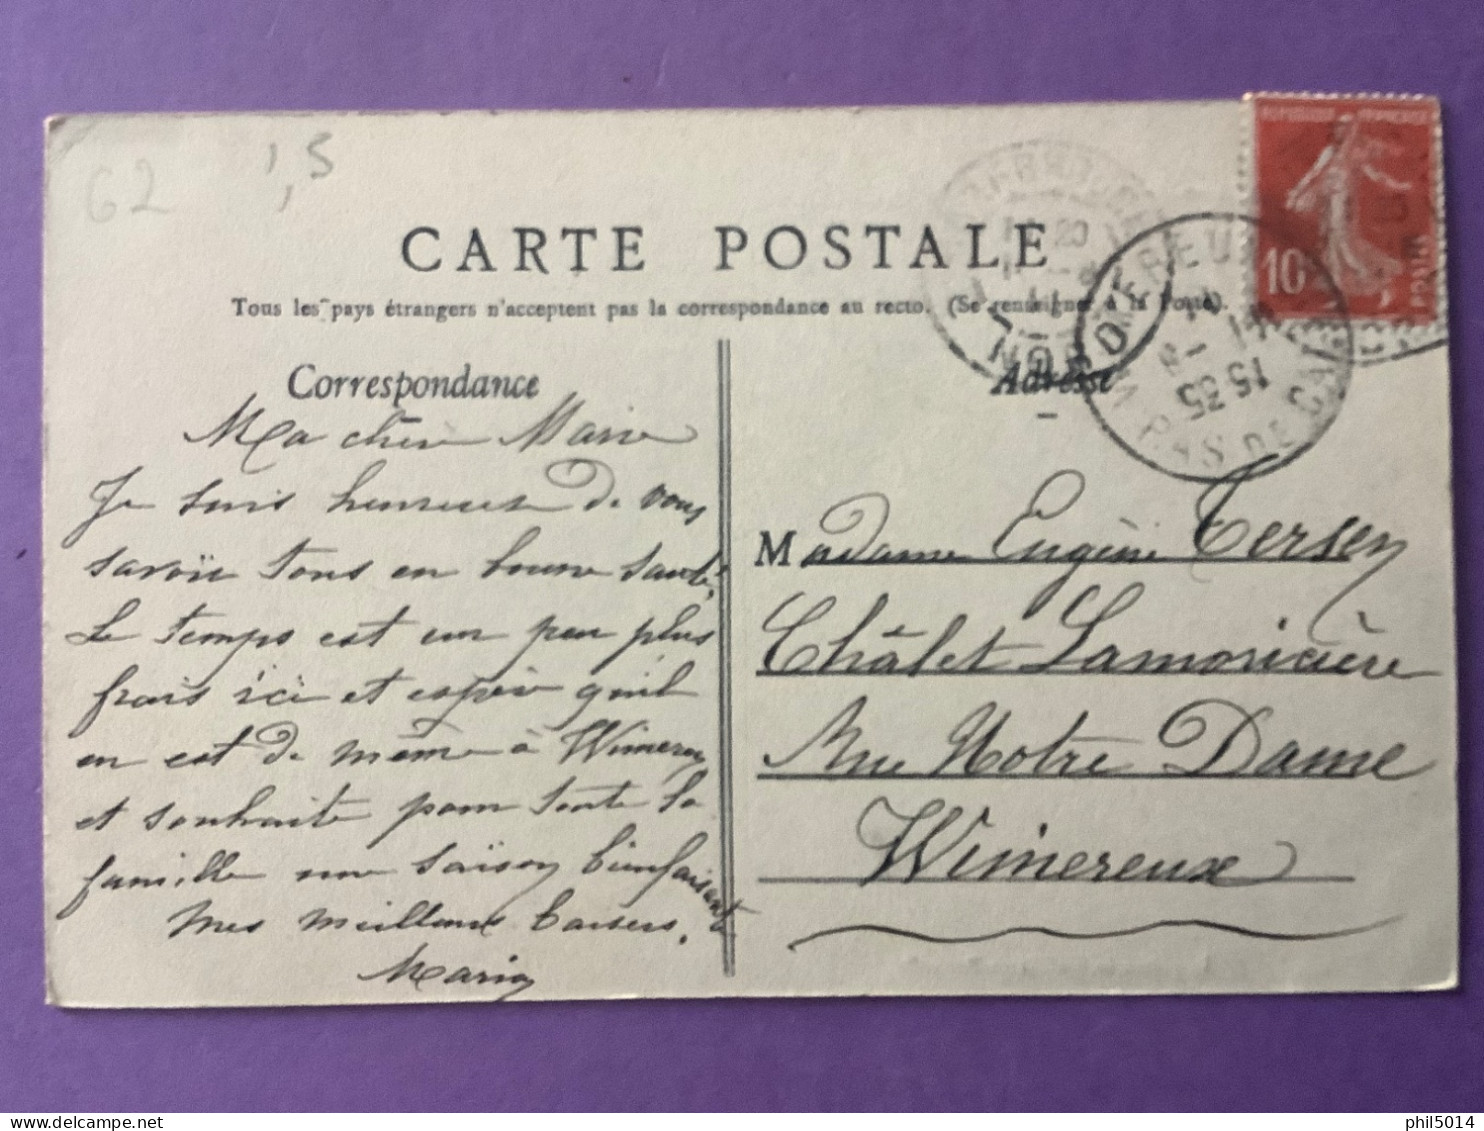 62 1,5
CARTE POSTALE
Tous les pays étrangers n'acceptent pas la correspondance au recto. (Se renseigner à la Poste).
Correspondance
Adresse
REPUBLIQUE FRANÇAISE
10
POSTES
WIMEREUX
15 35
PAS DE CALAIS
NORD
Ma chère Marie
Je suis heureuse de vous
savoir tous en bonne santé.
Le temps est un peu plus
frais ici et espère qu'il
en est de même à Wimereux
et souhaite pour toute la
famille une saison bienfaisante
Mes meilleurs baisers.
Maria
Madame Eugène Tersen
Châlet Lamoricière
Rue Notre Dame
Wimereux
phil5014